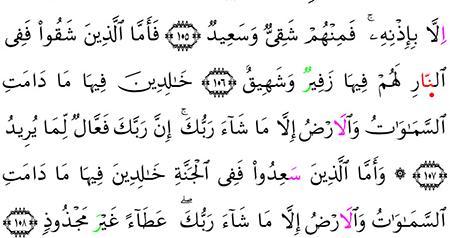 إِلَّا بِإِذْنِهِۦۚ فَمِنْهُمْ شَقِيٌّ وَسَعِيدٌ ١٠٥ فَأَمَّا ٱلَّذِينَ شَقُوا۟ فَفِى
ٱلنَّارِ لَهُمْ فِيهَا زَفِيرٌ وَشَهِيقٌ ١٠٦ خَٰلِدِينَ فِيهَا مَا دَامَتِ
ٱلسَّمَٰوَٰتُ وَٱلَارْضُ إِلَّا مَا شَآءَ رَبُّكَۚ إِنَّ رَبَّكَ فَعَّالٌ لِّمَا يُرِيدُ
١٠٧ ۞ وَأَمَّا ٱلَّذِينَ سَعِدُوا۟ فَفِى ٱلْجَنَّةِ خَٰلِدِينَ فِيهَا مَا دَامَتِ
ٱلسَّمَٰوَٰتُ وَٱلَارْضُ إِلَّا مَا شَآءَ رَبُّكَۖ عَطَآءً غَيْرَ مَجْذُوذٍ ١٠٨